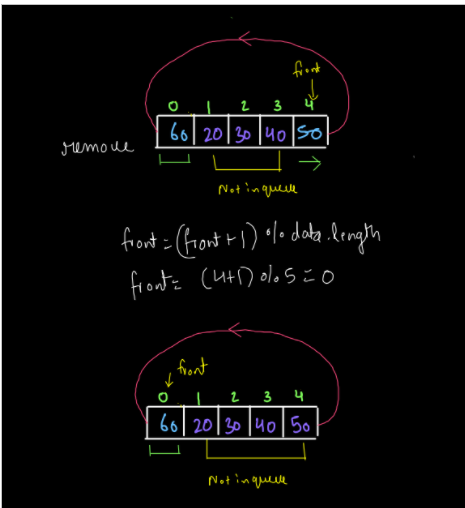 front
0 1 2 3 4
remove 60 20 30 40 50
Not in queue
front = (front + 1) % data.length
front = (4+1) % 5 = 0
front
0 1 2 3 4
60 20 30 40 50
Not in queue